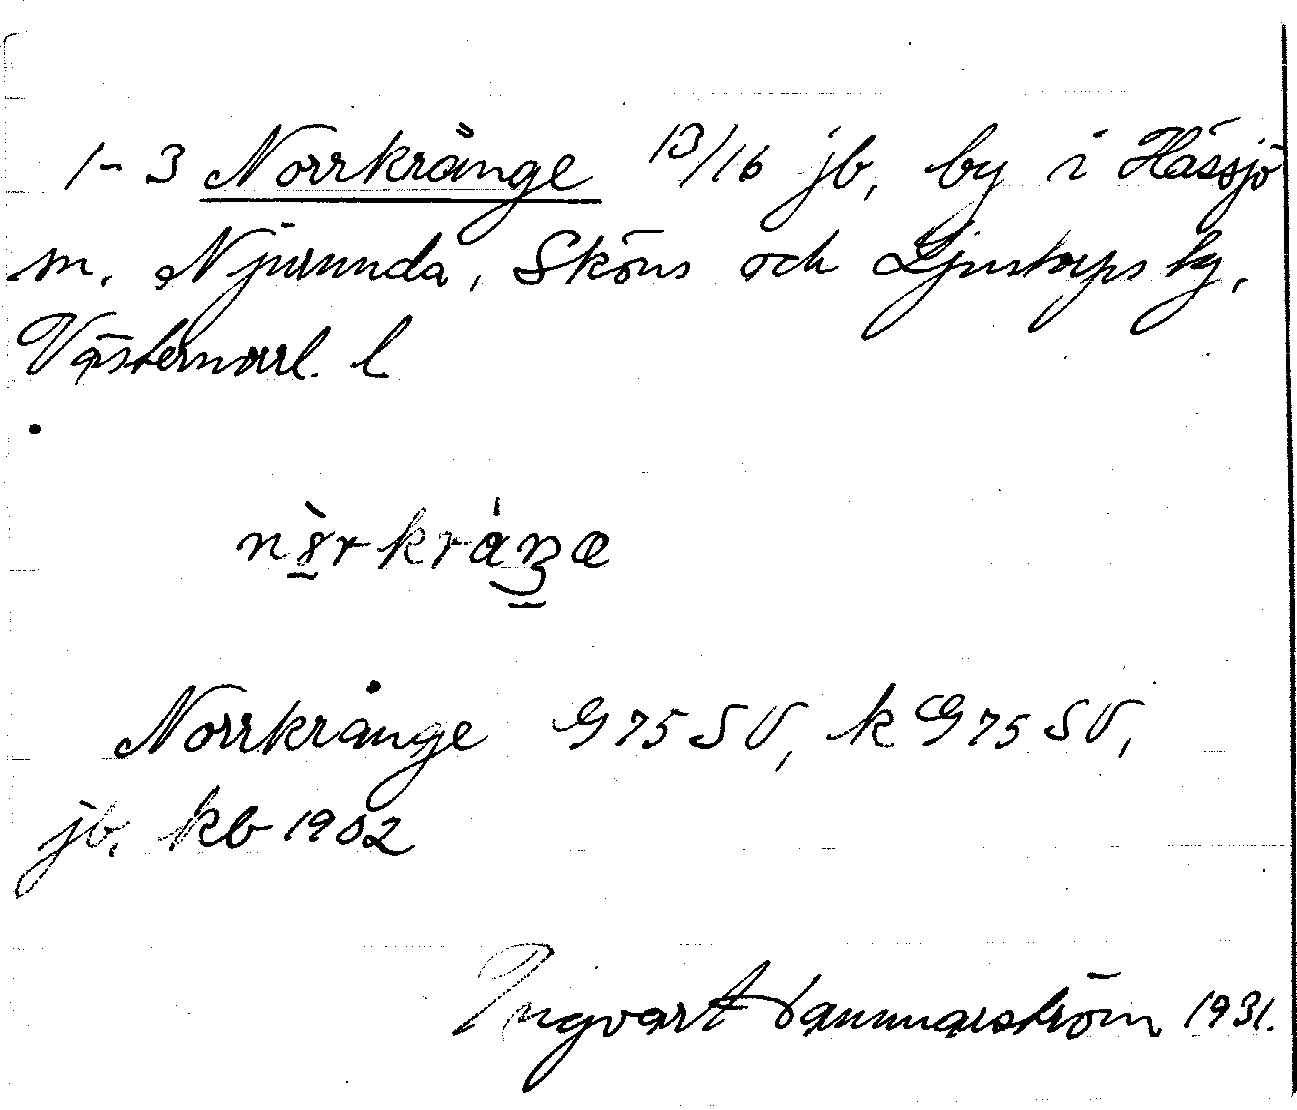 1-3 Norrkrånge 13/16 jb, by i Hässjö
sn. Njurunda, Sköns och Ljustorps tg,
Västernorrl. l
Norrkrånge G 75 SV, k G 75 SV,
jb, kb 1902
Ingvart Hammarström 1931.